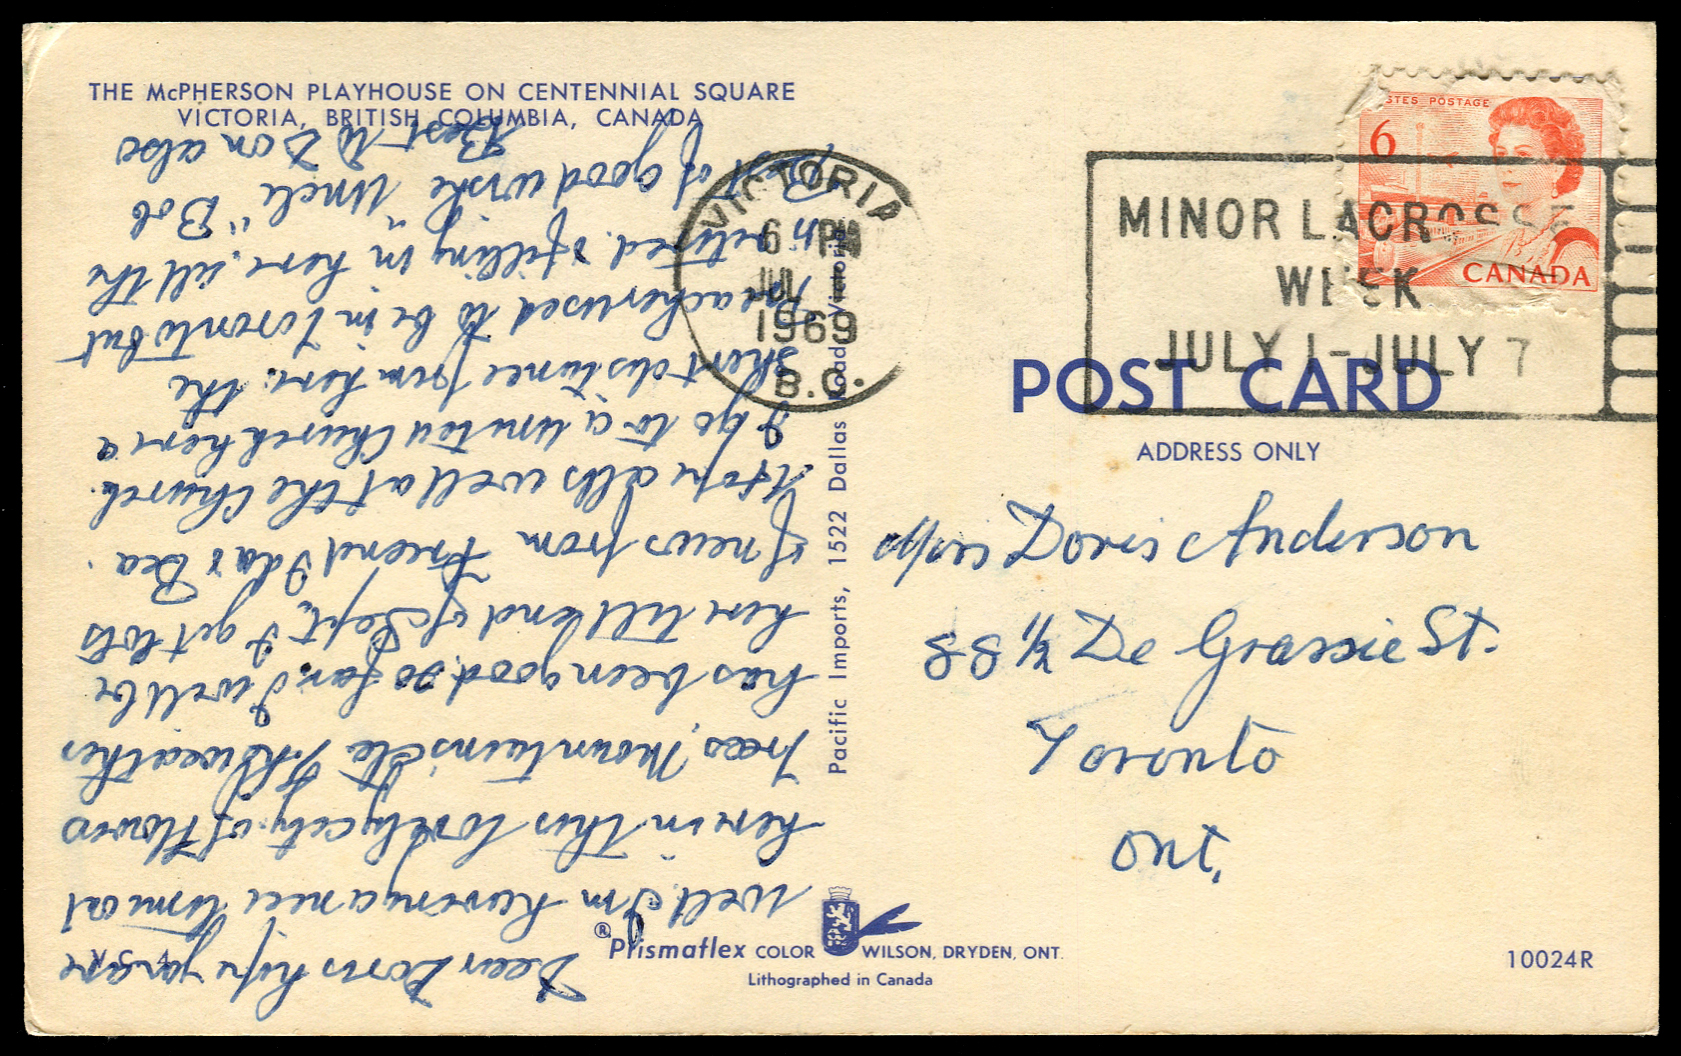 THE McPHERSON PLAYHOUSE ON CENTENNIAL SQUARE
VICTORIA, BRITISH COLUMBIA, CANADA
VICTORIA
6 PM
JUL 1
1969
B.C.
MINOR LACROSSE
WEEK
JULY 1-JULY 7
POSTES POSTAGE
6
CANADA
POST CARD
ADDRESS ONLY
Miss Doris Anderson
88 1/2 De Grassie St.
Toronto
Ont.
Pacific Imports, 1522 Dallas Road, Victoria
® Prismaflex COLOR WILSON, DRYDEN, ONT.
Lithographed in Canada
10024R
Dear Doris hope you are
well. I'm having a nice time at
here in this lovely city of flowers
trees, mountains etc. The weather
has been good so far. I will be
here till end of Sept. I get lots
of news from Friend Ida & Bea.
Hope alls well at the Church.
I go to a United Church here a
short distance from here. the
preacher used to be in Toronto but
retired & filling in here. all the
Best of good wishe "Uncle" Bob
Best to Don also